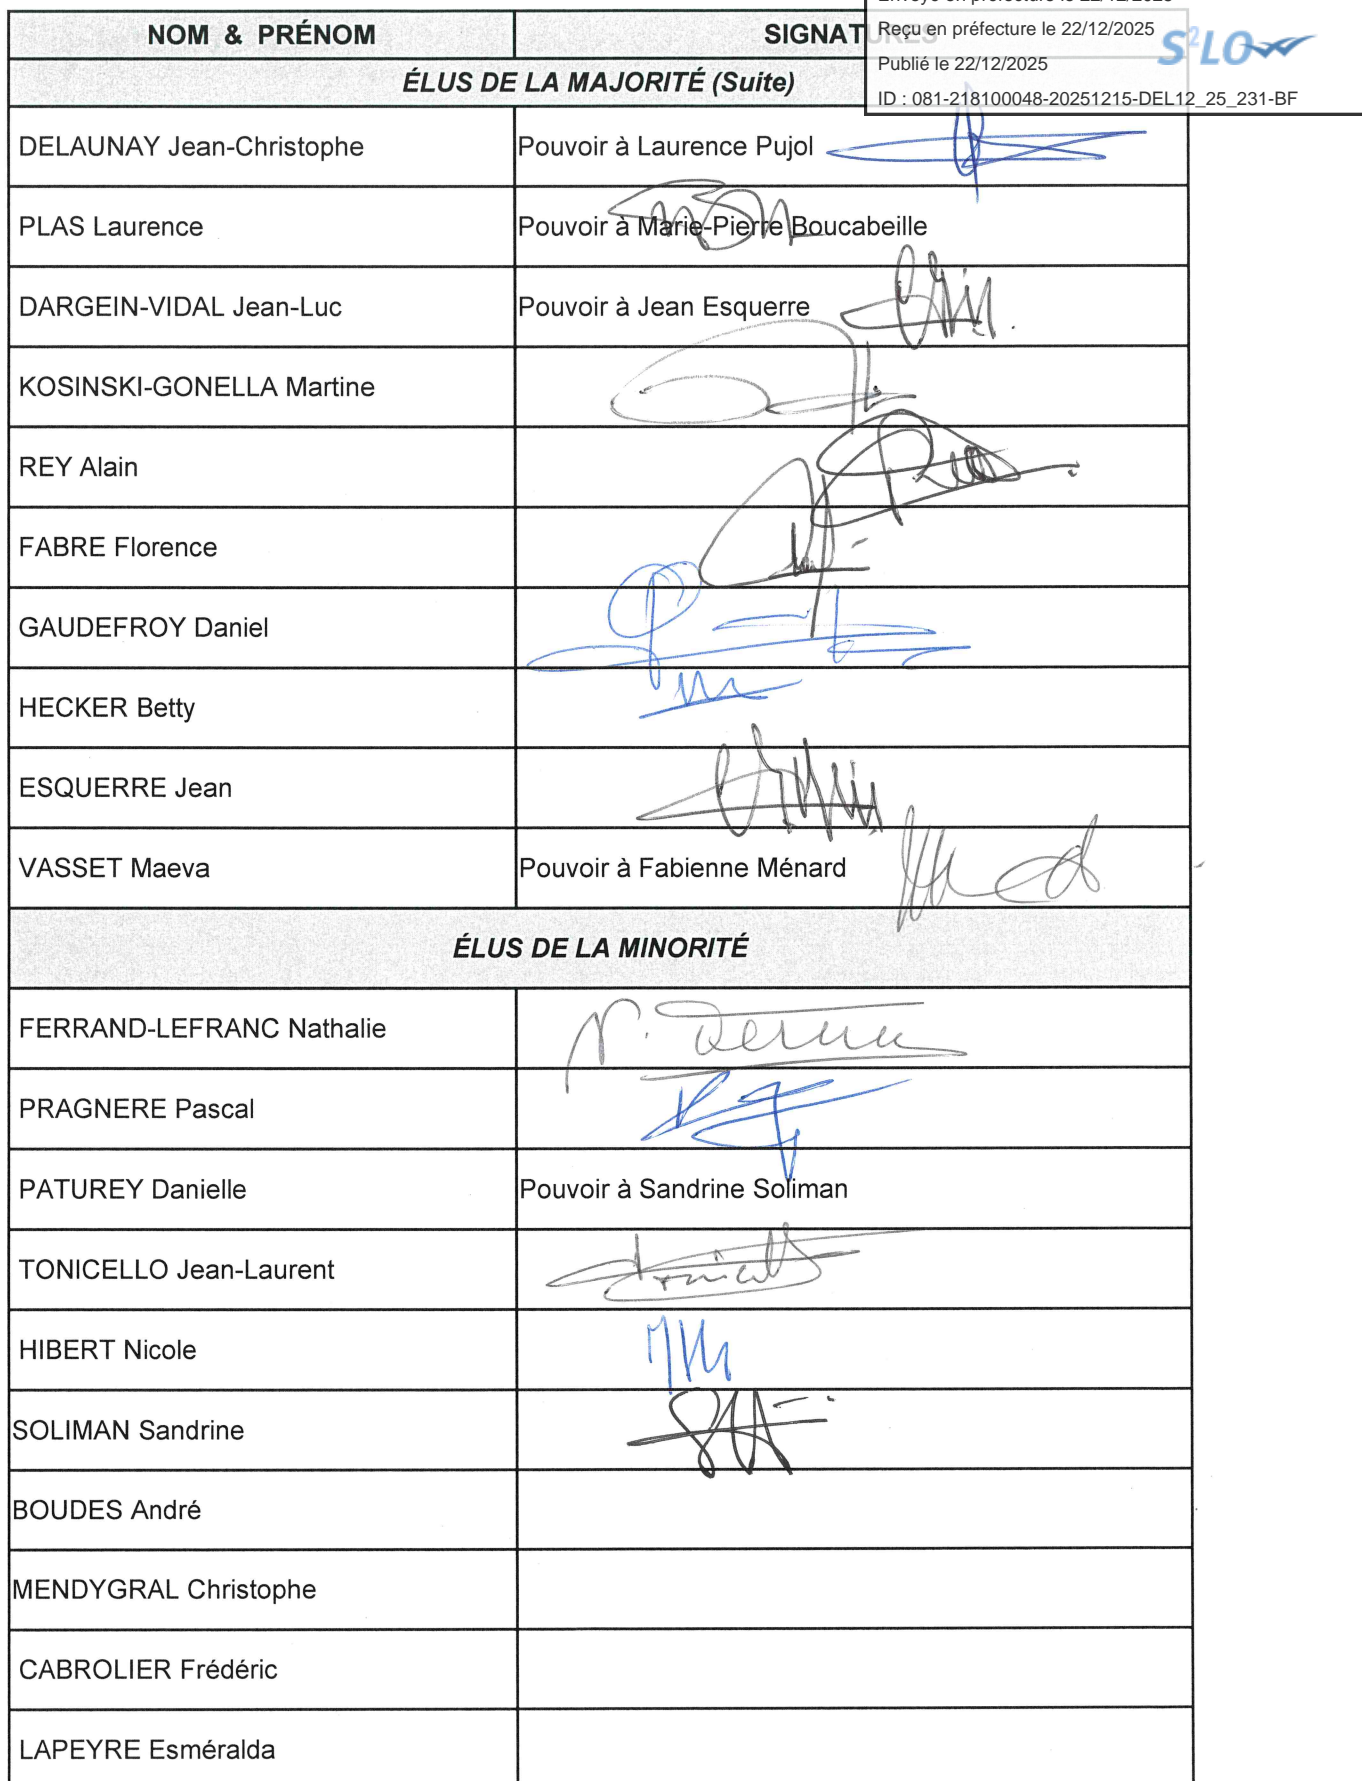 Reçu en préfecture le 22/12/2025
Publié le 22/12/2025
ID : 081-218100048-20251215-DEL12_25_231-BF
S²LO
NOM & PRÉNOM SIGNATURES
ÉLUS DE LA MAJORITÉ (Suite)
DELAUNAY Jean-Christophe Pouvoir à Laurence Pujol
PLAS Laurence Pouvoir à Marie-Pierre Boucabeille
DARGEIN-VIDAL Jean-Luc Pouvoir à Jean Esquerre
KOSINSKI-GONELLA Martine
REY Alain
FABRE Florence
GAUDEFROY Daniel
HECKER Betty
ESQUERRE Jean
VASSET Maeva Pouvoir à Fabienne Ménard
ÉLUS DE LA MINORITÉ
FERRAND-LEFRANC Nathalie
PRAGNERE Pascal
PATUREY Danielle Pouvoir à Sandrine Soliman
TONICELLO Jean-Laurent
HIBERT Nicole
SOLIMAN Sandrine
BOUDES André
MENDYGRAL Christophe
CABROLIER Frédéric
LAPEYRE Esméralda